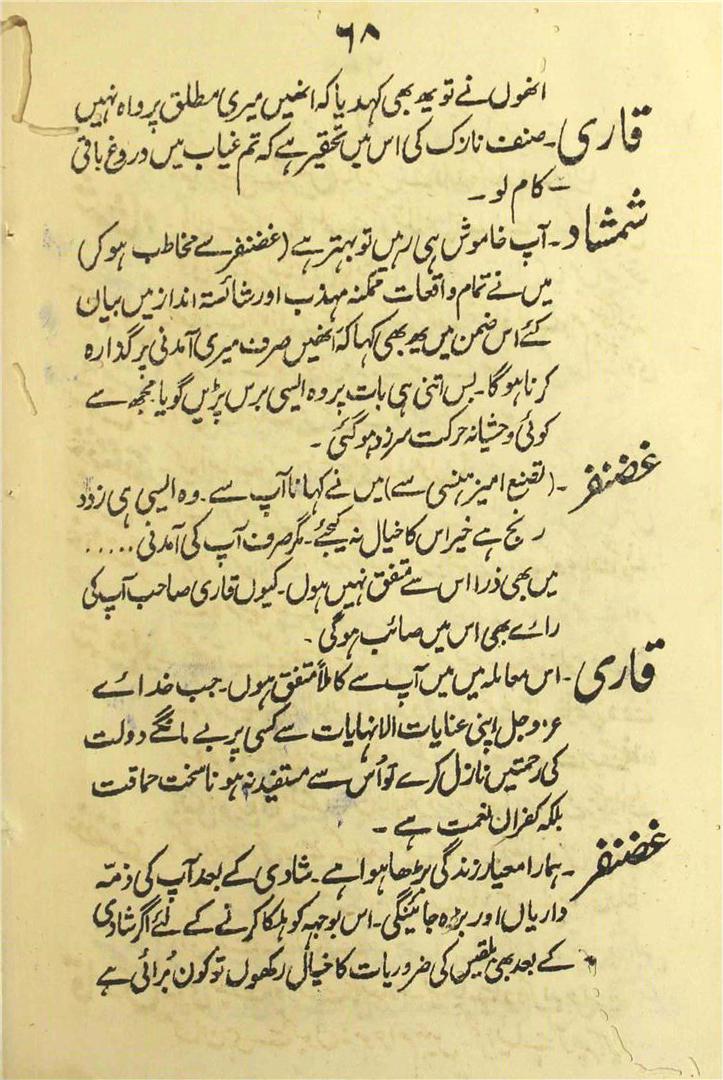 ۶۸
انھوں نے تو یہ بھی کہدیا کہ انھیں میری مطلق پرواہ نہیں
قاری ۔ صنف نازک کی اس میں تحقیر ہے کہ تم غیاب میں دروغ بافی
سے کام لو ۔
شمشاد ۔ آپ خاموش ہی رہیں تو بہتر ہے (غضنفر سے مخاطب ہو کر)
میں نے تمام واقعات ممکنہ مہذب اور شائستہ انداز میں بیان
کئے اس ضمن میں یہ بھی کہا کہ انھیں صرف میری آمدنی پر گذارہ
کرنا ہو گا ۔ بس اتنی ہی بات پر وہ ایسی برس پڑیں گویا مجھ سے
کوئی وحشیانہ حرکت سرزد ہو گئی ۔
غضنفر ۔ (تصنع امیز ہنسی سے) میں نے کہا نا آپ سے ۔ وہ ایسی ہی زود
رنج ہے خیر اس کا خیال نہ کیجئے ۔ مگر صرف آپ کی آمدنی .....
میں بھی ذرا اس سے متفق نہیں ہوں ۔ کیوں قاری صاحب آپ کی
رائے بھی اس میں صائب ہو گی ۔
قاری ۔ اس معاملہ میں میں آپ سے کاملاً متفق ہوں ۔ جب خدائے
عز وجل اپنی عنایات الانہایات سے کسی پر بے مانگے دولت
کی رحمتیں نازل کرے تو اُس سے مستفید نہ ہونا سخت حماقت
بلکہ کفران نعمت ہے ۔
غضنفر ۔ ہمارا معیار زندگی بڑھا ہوا ہے ۔ شادی کے بعد آپ کی ذمہ
داریاں اور بڑہ جائینگی ۔ اس بوجہہ کو ہلکا کرنے کے لئے اگر شادی
کے بعد بھی بلقیس کی ضروریات کا خیال رکھوں تو کون بُرائی ہے